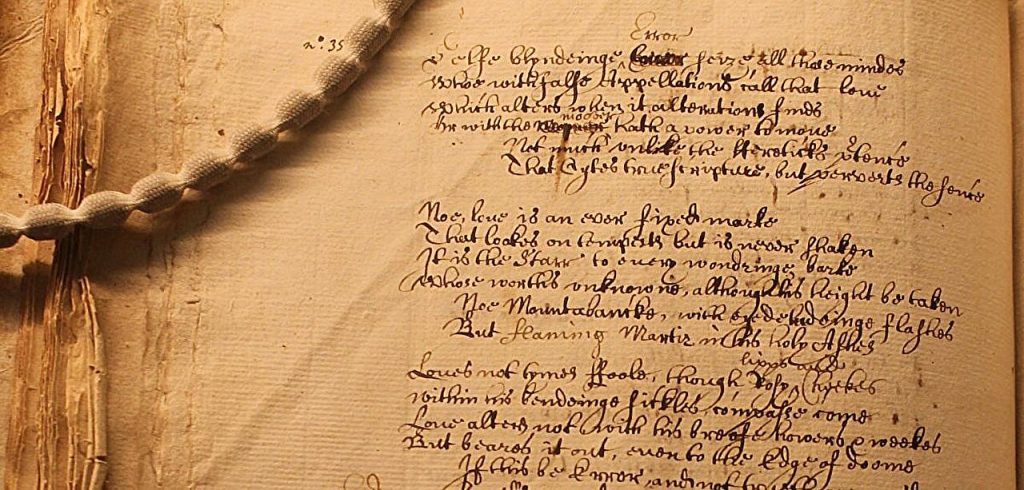 Error
n.o 35
Selfe blyndeinge seize all those mindes
Whoe with false Appellations call that love
Which alters when it alterations finds
mover
Or with the hath a power to move
Not much unlike the Hereticks ptence
That Cytes true scripture, but perverts the sence
Noe, love is an ever fixed marke
That lookes on tempests but is never shaken
It is the Starr to every wondringe barke
Whose worths unknowne, although his height be taken
Noe Mountabancke, with eyedeludeinge flashes
But flaming Martir in his holy Ashes
lipps and
Loves not tymes foole, though Rosy Cheekes
within his bendeinge sickles compasse come
Love alters not with his breefe howers & weekes
But beares it out, even to the Edge of doome
If this be Error, and not